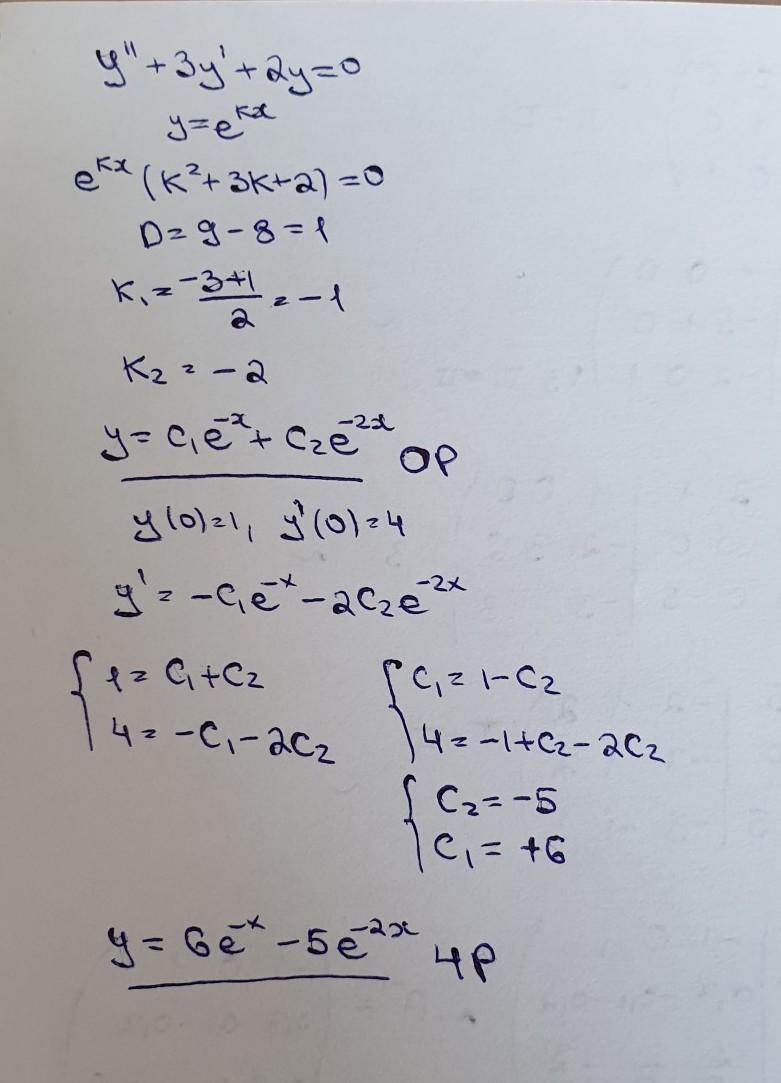 y'' + 3y' + 2y = 0
y = e^{kx}
e^{kx} (k² + 3k + 2) = 0
D = 9 - 8 = 1
k₁ = \frac{-3+1}{2} = -1
k₂ = -2
y = C₁e^{-x} + C₂e^{-2x} ОР
y(0) = 1, y'(0) = 4
y' = -C₁e^{-x} - 2C₂e^{-2x}
{ 1 = C₁ + C₂ { C₁ = 1 - C₂
4 = -C₁ - 2C₂ 4 = -1 + C₂ - 2C₂
{ C₂ = -5
C₁ = +6
y = 6e^{-x} - 5e^{-2x} ЧР